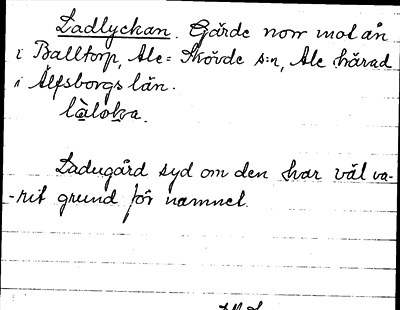 Ladlyckan. Gärde norr mot ån
i Balltorp, Ale-Skövde s:n, Ale härad
i Älfsborgs län.
làloka.
Ladugård syd om den har väl va-
-rit grund för namnet.